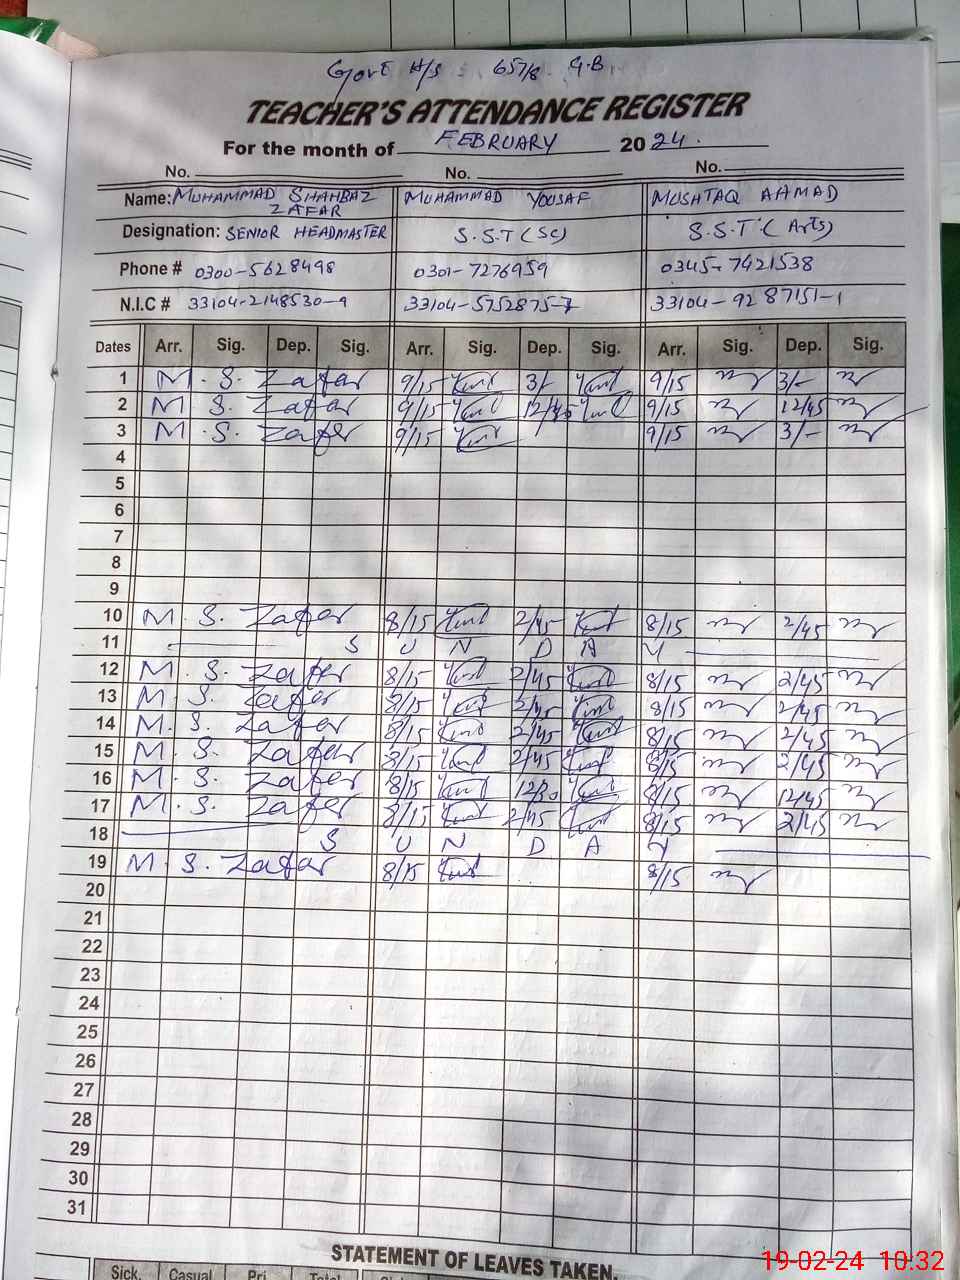 Govt H/S 657/8 G.B
TEACHER'S ATTENDANCE REGISTER
For the month of FEBRUARY 2024.
No. No. No.
Name: MUHAMMAD SHAHBAZ ZAFAR MUHAMMAD YOUSAF MUSHTAQ AHMAD
Designation: SENIOR HEADMASTER S.S.T (SC) S.S.T (Arts)
Phone # 0300-5628498 0301-7276959 0345-7421538
N.I.C # 33104-2148530-9 33104-5752875-7 33104-9287151-1
Dates Arr. Sig. Dep. Sig. Arr. Sig. Dep. Sig. Arr. Sig. Dep. Sig.
1 M. S. Zafar 9/15 3/- 9/15 3/-
2 M S. Zafar 9/15 12/45 9/15 12/45
3 M. S. Zafar 9/15 9/15 3/-
4
5
6
7
8
9
10 M. S. Zafar 8/15 2/45 8/15 2/45
11 S U N D A Y
12 M. S. Zafar 8/15 2/45 8/15 2/45
13 M. S. Zafar 8/15 2/45 8/15 2/45
14 M. S. Zafar 8/15 2/45 8/15 2/45
15 M. S. Zafar 8/15 2/45 8/15 2/45
16 M. S. Zafar 8/15 12/30 8/15 12/45
17 M. S. Zafar 8/15 2/45 8/15 2/45
18 S U N D A Y
19 M. S. Zafar 8/15 8/15
20
21
22
23
24
25
26
27
28
29
30
31
STATEMENT OF LEAVES TAKEN.
Sick. Casual Pri. Total
19-02-24 10:32